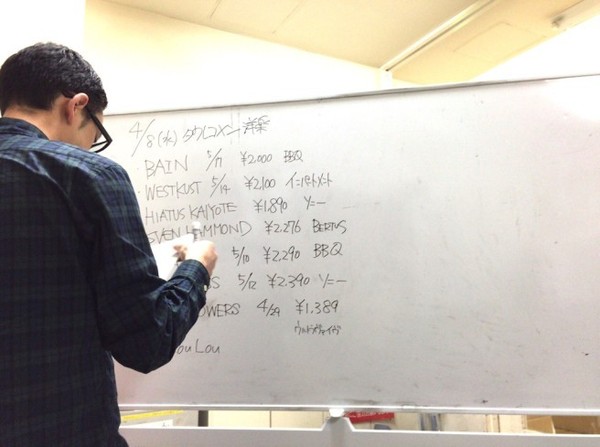 4/8(水) タワレコメン 洋楽
BAIN 5/ ¥2,000 BBQ
WESTKUST 5/14 ¥2,100 インパートメント
HIATUS KAIYOTE ¥1,890 ソニー
SVEN HAMMOND ¥2,276 BERTUS
5/10 ¥2,290 BBQ
5/12 ¥2,390 ソニー
OWERS 4/29 ¥1,389
ouLou